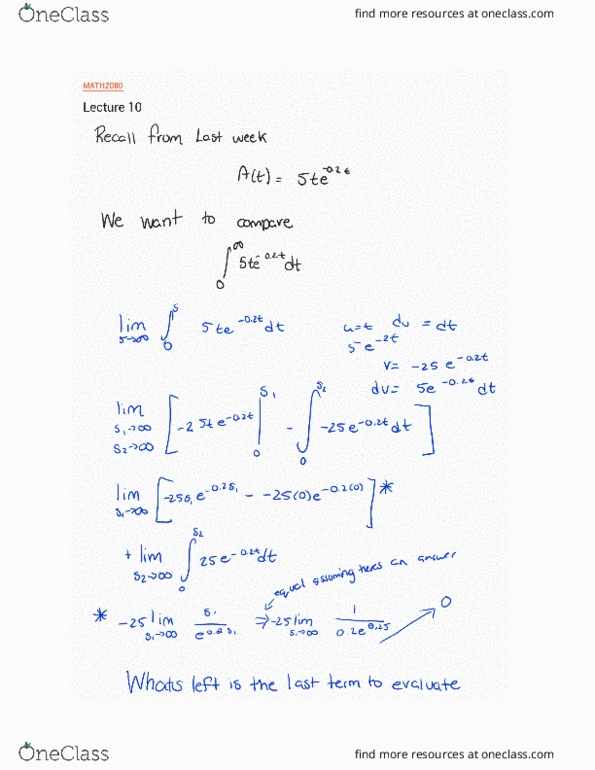 OneClass
find more resources at oneclass.com
MATH2080
Lecture 10
Recall from Last week
A(t) = 5te^-0.2t
We want to compare
∫_0^∞ 5te^-0.2t dt
lim_{s→∞} ∫_0^s 5te^-0.2t dt
u=t du = dt
5e^-2t
v= -25 e^-0.2t
dv= 5e^-0.2t dt
lim_{s₁→∞ s₂→∞} [ -25te^-0.2t |_0^{s₁} - ∫_0^{s₂} -25e^-0.2t dt ]
lim_{s₁→∞} [ -25s₁e^-0.2s₁ - -25(0)e^-0.2(0) ] *
+ lim_{s₂→∞} ∫_0^{s₂} 25e^-0.2t dt
equal assuming theres an answer
* -25 lim_{s₁→∞} s₁/e^0.2s₁ ⇒ -25 lim_{s₁→∞} 1/0.2e^0.2s → 0
Whats left is the last term to evaluate
OneClass
find more resources at oneclass.com